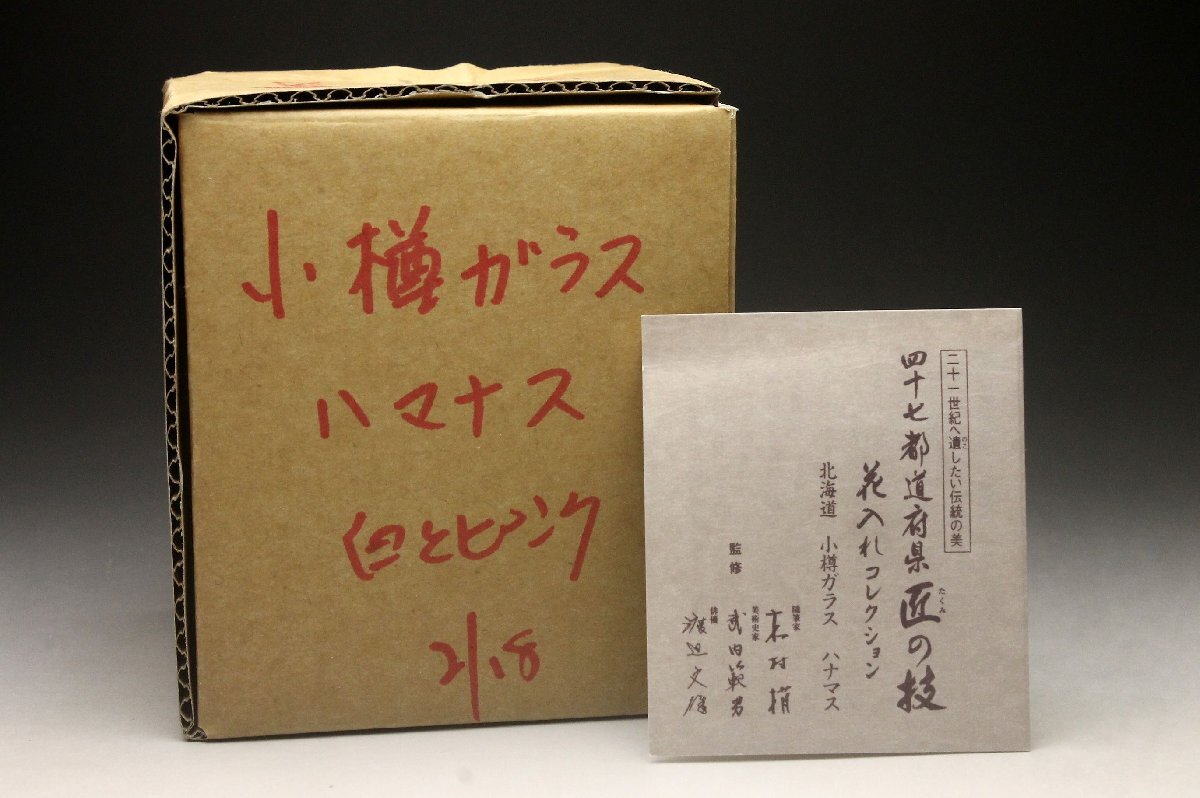 小樽ガラス
ハマナス
白とピンク
2/18
二十一世紀へ遺したい伝統の美
のこ
四十七都道府県匠の技
たくみ
花入れコレクション
北海道 小樽ガラス ハナマス
監修
随筆家
美術史家
武田範男
俳優
渡辺文雄